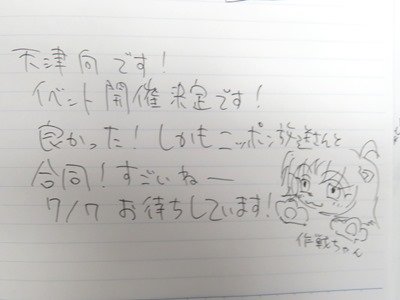 天津向です！
イベント開催決定です！
良かった！しかもニッポン放送さんと
合同！すごいねー
7/7 お待ちしています！
作戦ちゃん